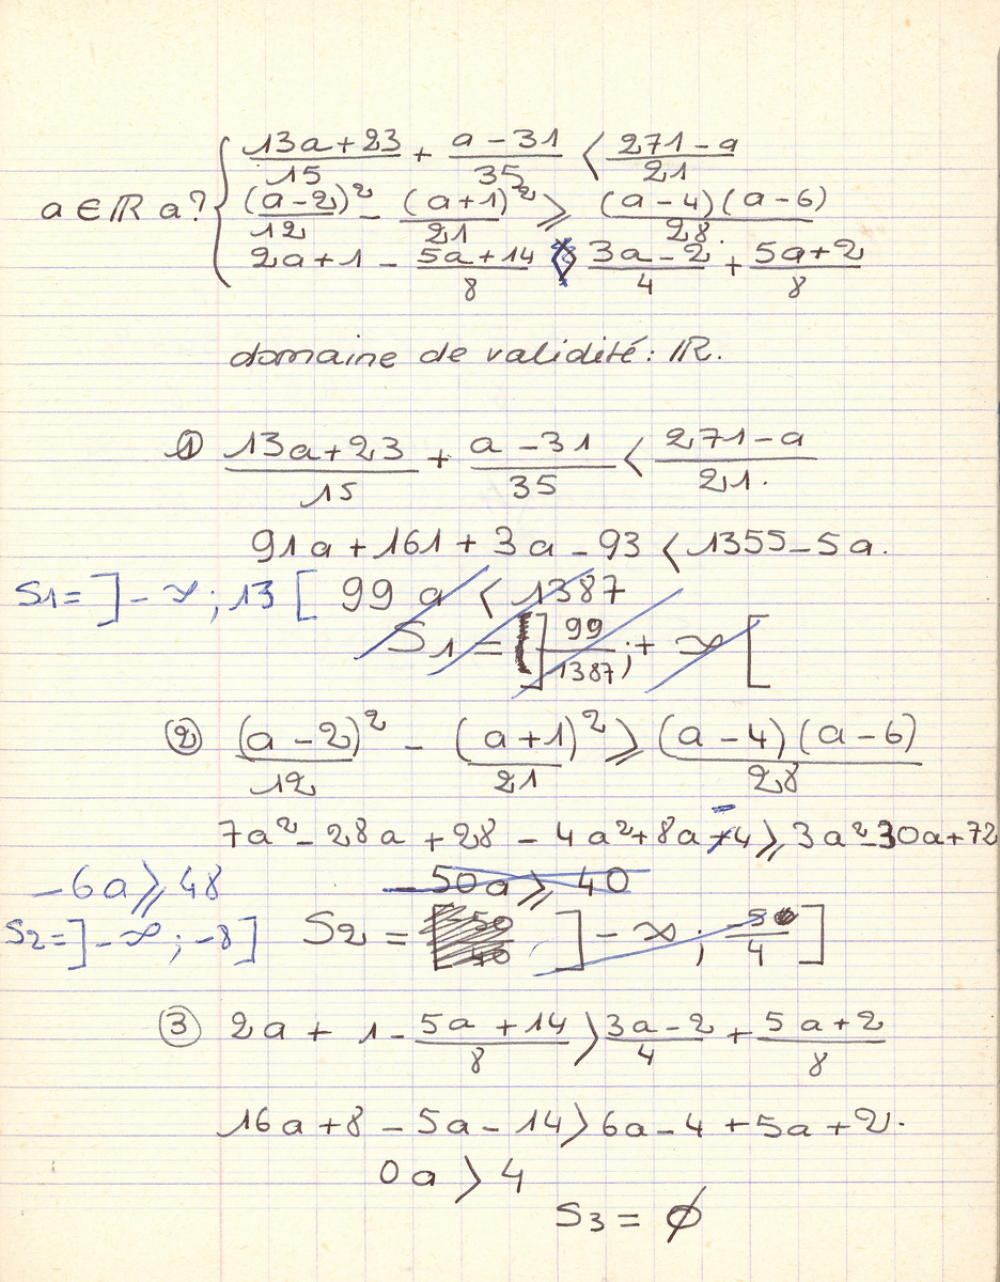 a ∈ ℝ a? { (13a+23)/15 + (a-31)/35 < (271-a)/21
(a-2)²/12 - (a+1)²/21 ⩾ (a-4)(a-6)/28.
2a+1 - (5a+14)/8 > (3a-2)/4 + (5a+2)/8
domaine de validité : ℝ.
① (13a+23)/15 + (a-31)/35 < (271-a)/21.
91a+161+3a-93 < 1355-5a.
S1= ]-∞ ; 13[ 99a < 1387
S1 = ]99/1387 ; +∞[
② (a-2)²/12 - (a+1)²/21 ⩾ (a-4)(a-6)/28
7a²-28a+28-4a²+8a-4 ⩾ 3a²-30a+72
-6a ⩾ 48 -50a ⩾ 40
S2= ]-∞ ; -8] S2 = ]-∞ ; -50/4]
③ 2a+1-(5a+14)/8 > (3a-2)/4 + (5a+2)/8
16a+8-5a-14 > 6a-4+5a+2.
0a > 4
S3 = ∅